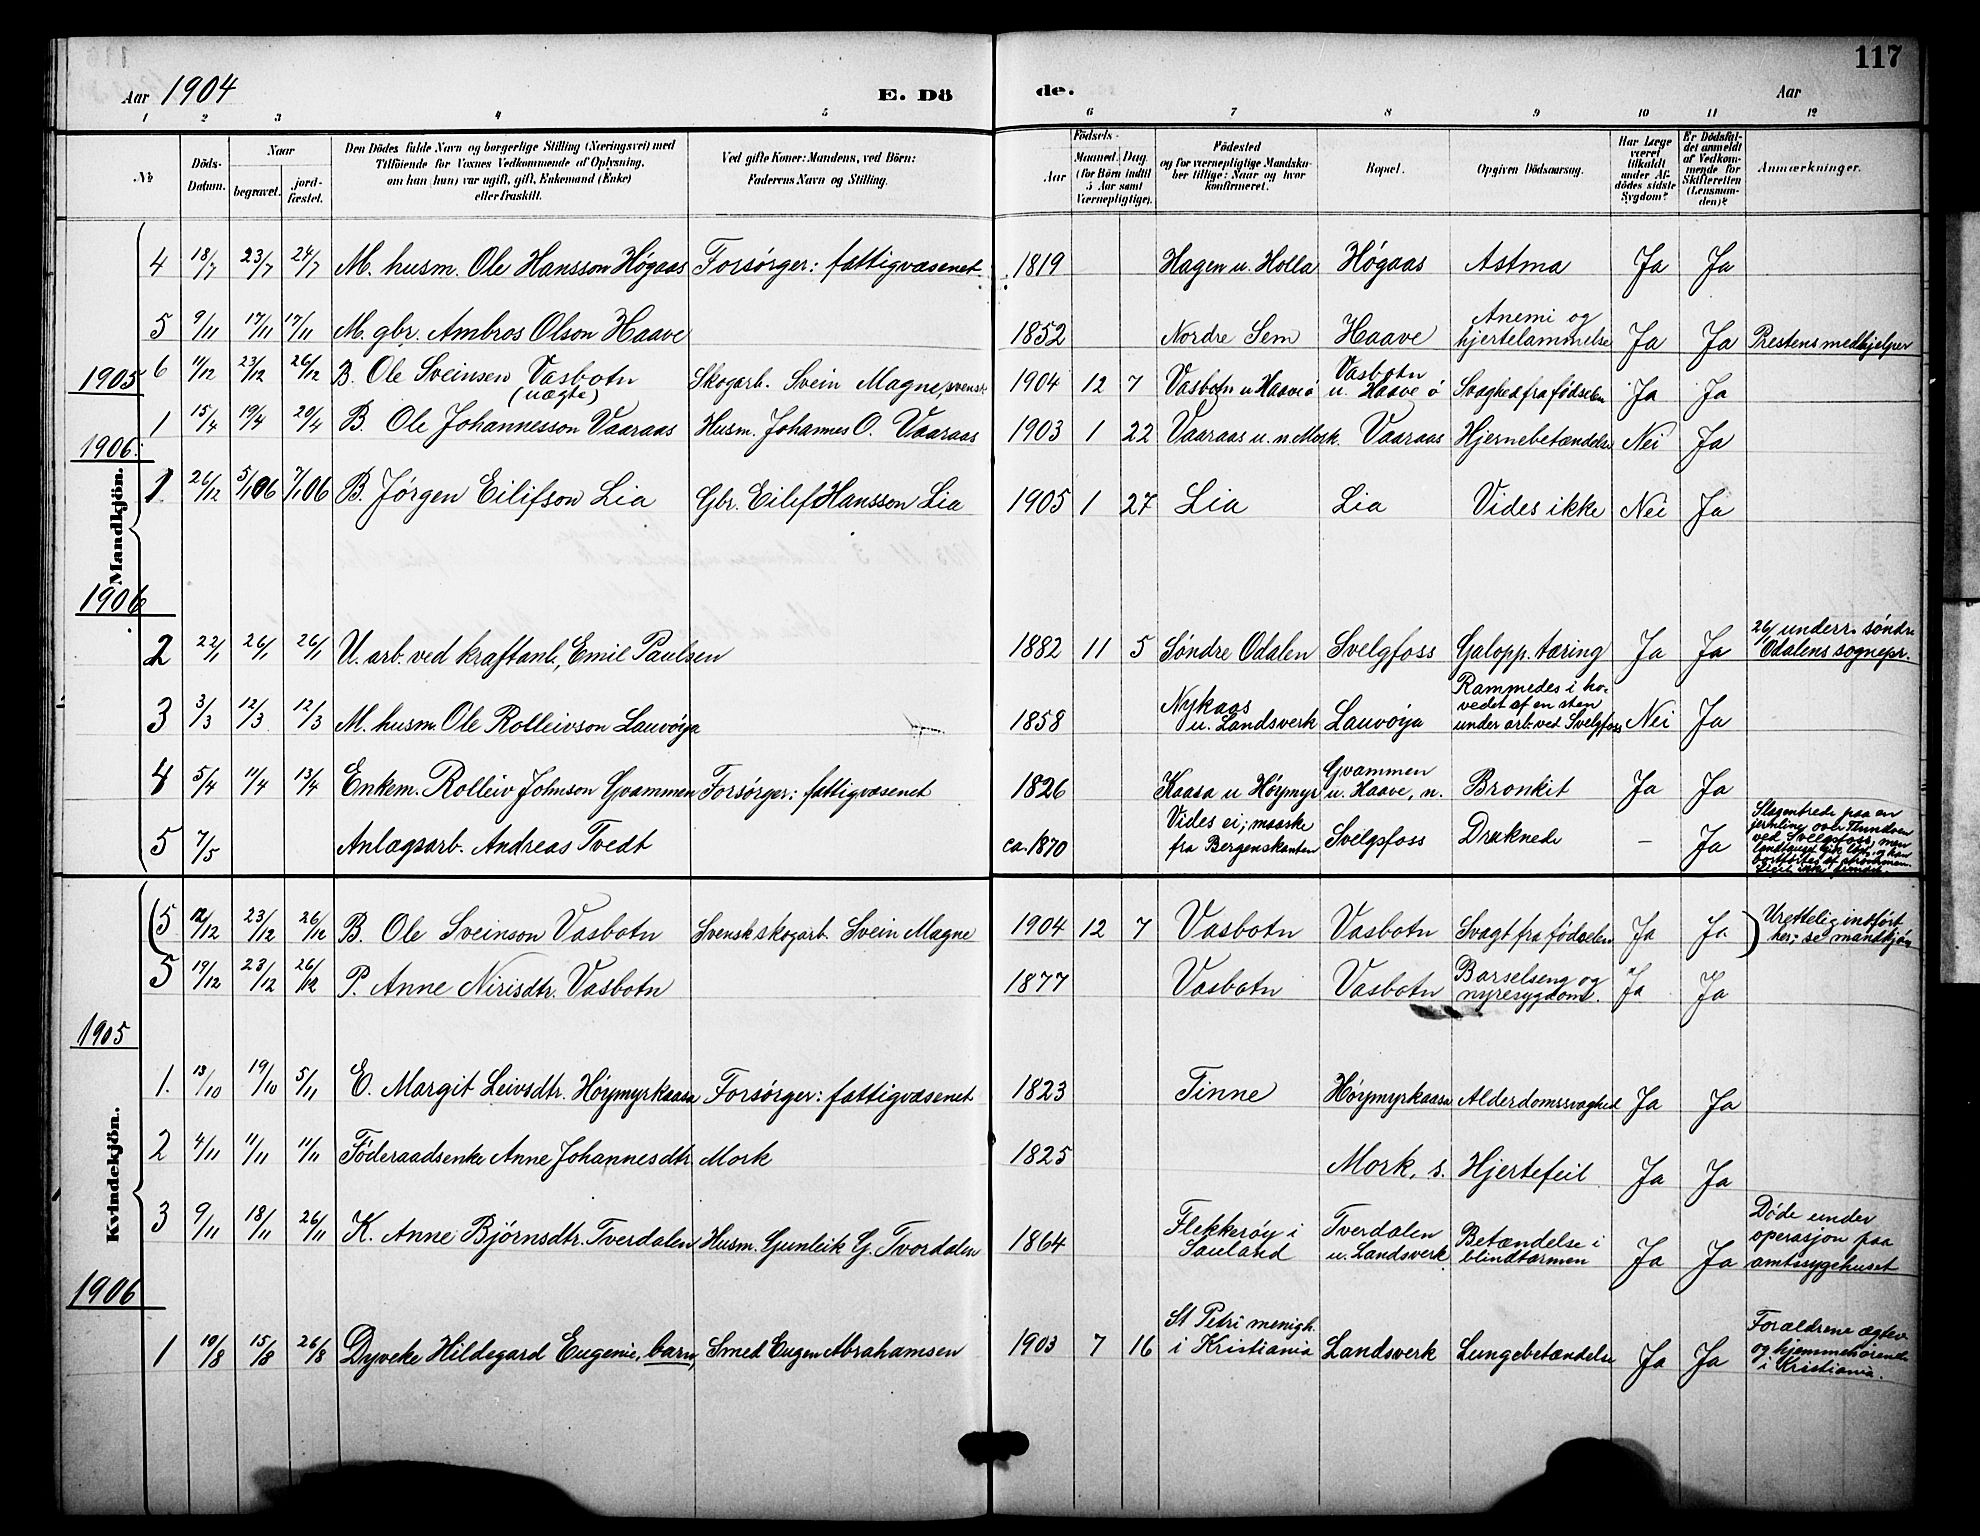 117
Aar 1904 E. Dö de. Aar
1 2 3 4 5 6 7 8 9 10 11 12
No
Döds-Datum.
Naar
begravet.
jord-fæstet.
Den Dödes fulde Navn og borgerlige Stilling (Næringsvei) med
Tilföiende for Voxnes Vedkommende af Oplysning,
om han (hun) var ugift, gift, Enkemand (Enke)
eller fraskilt.
Ved gifte Koner: Mandens, ved Börn:
Faderens Navn og Stilling.
Födsels-
Aar
Maaned. Dag
(for Börn indtil
5 Aar samt
Værnepligtige).
Födested
og for værnepligtige Mandska-
ber tillige: Naar og hvor
konfirmeret.
Bopæl.
Opgiven Dödsaarsag.
Har Læge
været
tilkaldt
under Af-
dödes sidste
Sygdom?
Er Dödsfal-
det anmeldt
af Vedkom-
mende for
Skifteretten
(Lensman-
den)?
Anmærkninger.
Mandkjön.
4 18/7 23/7 24/7 M. husm. Ole Hansson Høgaas Forsørger: fattigvæsenet 1819 Hagen u. Holla Høgaas Astma Ja Ja
5 9/11 17/11 17/11 M. gbr. Ambros Olson Haave 1852 Nordre Sem Haave Anemi og hjertelammelse Ja Ja Prestens medhjelper
6 11/12 23/12 26/12 B. Ole Sveinsen Vasbotn (uægte) Skogarb. Svein Magne, svensk 1904 12 7 Vasbotn u. Haave ø Vasbotn u. Haave ø Svaghed fra fødselen Ja Ja
1905
1 15/4 19/4 20/4 B. Ole Johannesson Vaaraas Husm. Johannes O. Vaaraas 1903 1 22 Vaaraas u. n. Mork. Vaaraas Hjernebetændelse Nei Ja
1906
1 26/12 5/1 06 7/1 06 B. Jørgen Eilifson Lia Gbr. Eilef Hansson Lia 1905 1 27 Lia Lia Vides ikke Nei Ja
1906
2 22/1 26/1 26/1 U. arb. ved kraftanl., Emil Paulsen 1882 11 5 Søndre Odalen Svelgfoss Galopp. tæring Ja Ja 26/1 underr. søndre Odalens sognepr.
3 3/3 12/3 12/3 M. husm. Ole Rolleivson Lauvøya 1858 Nykaas u. Landsverk Lauvøya Rammedes i ho- vedet af en sten under arb. ved Svelgfoss Nei Ja
4 5/4 11/4 13/4 Enkem. Rolleiv Johnson Gvammen Forsørger: fattigvæsenet 1826 Kaasa u Høymyr Gvammen u. Haave, n. Bronkit Ja Ja
5 7/5 Anlægsarb. Andreas Tvedt ca. 1870 Vides ei; maaske fra Bergenskanten Svelgfoss Druknede – Ja
ved Svelgfoss, men
Kvindekjön.
5 12/12 23/12 26/12 B. Ole Sveinson Vasbotn Svensk skogarb. Svein Magne 1904 12 7 Vasbotn Vasbotn Svagt fra fødselen Ja Ja Urettelig indført her; se mandkjøn
5 19/12 23/12 26/12 P. Anne Nirisdtr. Vasbotn 1877 Vasbotn Vasbotn Barselseng og nyresygdom. Ja Ja
1905
1. 13/10 19/10 5/11 E. Margit Leivsdtr. Høymyrkaasa Forsørger: fattigvæsenet 1823 Tinne Høymyrkaasa Alderdomssvaghed Ja Ja
2 4/11 11/11 11/11 Föderaadsenke Anne Johannesdtr. Mork 1825 Mork, s. Hjertefeil Ja Ja
3 9/11 18/11 26/11 K. Anne Bjørnsdtr. Tverdalen Husm. Gunleik G. Tverdalen 1864 Flekkerøy i Sauland Tverdalen u. Landsverk Betændelse i blindtarmen Ja Ja Døde under operasjon paa amtssygehuset
1906
1 10/8 15/8 26/8 Dyveke Hildegard Eugenie, barn, Smed Eugen Abrahamsen 1903 7 16 St Petri menigh. i Kristiania Landsverk Lungebetændelse Ja Ja Forældrene ægtev. og hjemmehørende i Kristiania.